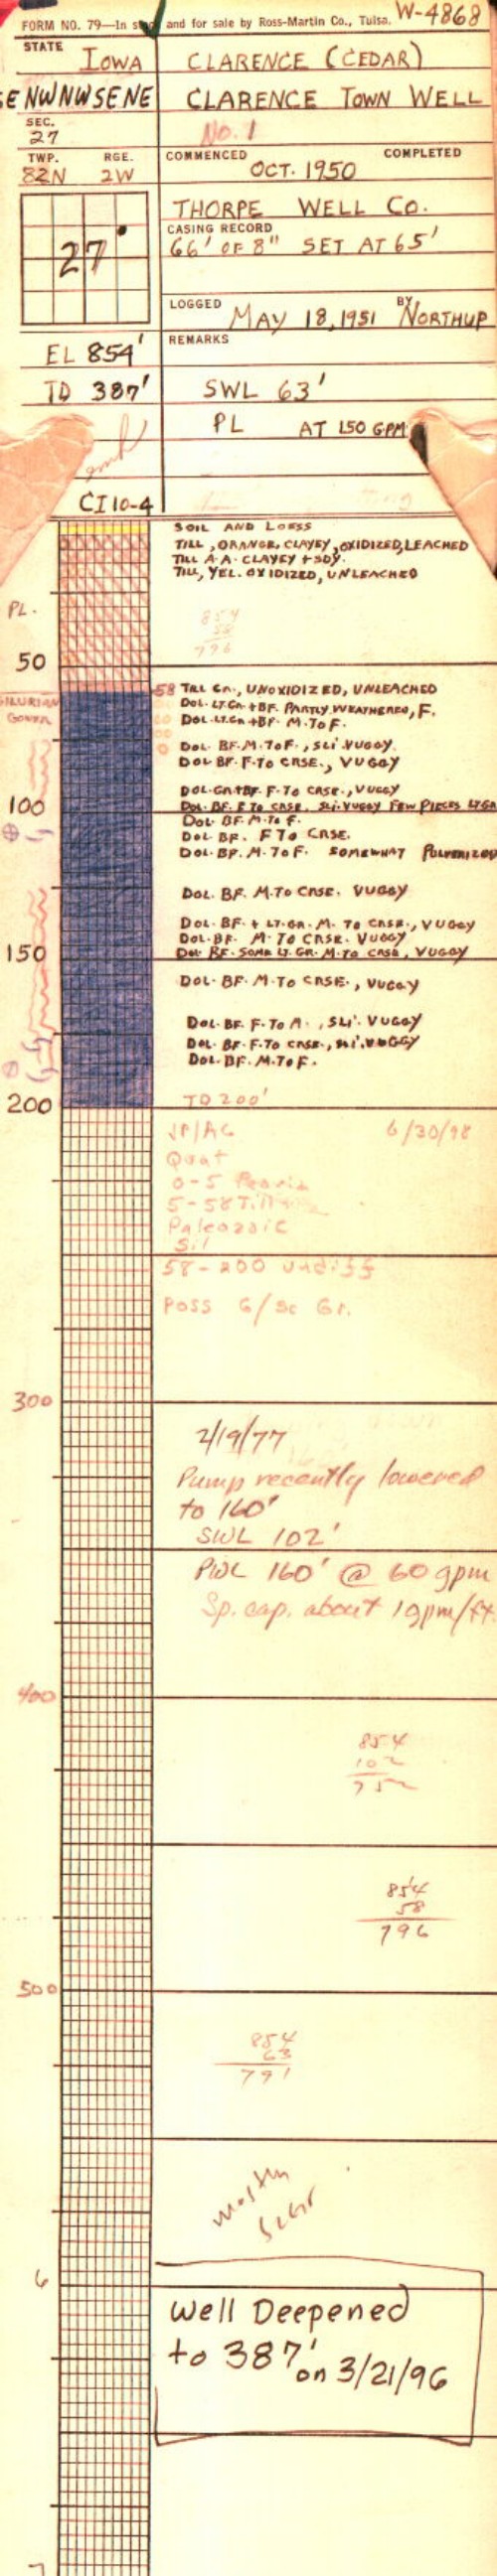 W-4868
FORM NO. 79—In stock and for sale by Ross-Martin Co., Tulsa.
STATE IOWA
CLARENCE (CEDAR)
SE NW NW SE NE
CLARENCE TOWN WELL
SEC. 27
No. 1
TWP. 82N RGE. 2W
COMMENCED OCT. 1950 COMPLETED
THORPE WELL CO.
27
CASING RECORD
66' OF 8" SET AT 65'
LOGGED MAY 18, 1951 BY NORTHUP
EL 854'
REMARKS
TD 387'
SWL 63'
PL AT 150 GPM
CI 10-4
SOIL AND LOESS
TILL, ORANGE, CLAYEY, OXIDIZED, LEACHED
TILL A.A. CLAYEY + SDY.
TILL, YEL. OXIDIZED, UNLEACHED
854
58
796
PL.
50
58 TILL GR., UNOXIDIZED, UNLEACHED
SILURIAN
DOL. LT.GR + BF. PARTLY WEATHERED, F.
DOL. LT.GR + BF. M. TO F.
DOL. BF. M. TO F., SLI. VUGGY.
DOL BF. F. TO CRSE., VUGGY
DOL. GR + BF. F. TO CRSE., VUGGY
100
DOL. BF. F. TO CRSE. SLI. VUGGY FEW PIECES LT.GR
DOL BF. M. TO F.
DOL BF. F TO CRSE.
DOL. BF. M. TO F. SOMEWHAT PULVERIZED
DOL. BF. M. TO CRSE. VUGGY
DOL. BF. + LT. GR. M. TO CRSE., VUGGY
DOL. BF. M. TO CRSE. VUGGY
150
DOL. BF. SOME LT. GR. M. TO CRSE, VUGGY
DOL. BF. M. TO CRSE., VUGGY
DOL. BF. F. TO M., SLI. VUGGY
DOL. BF. F. TO CRSE., SLI. VUGGY
DOL. BF. M. TO F.
TD 200'
200
JP/AC 6/30/98
Quat
0-5 Peoria
5-58 Till
Paleozoic
Sil
58-200 undiff
Poss G/Sc Gr.
300
2/19/77
Pump recently lowered
to 160'
SWL 102'
PWL 160' @ 60 gpm
Sp. cap. about 1 gpm/ft.
400
854
102
752
854
58
796
500
854
63
791
6
Well Deepened
to 387'
on 3/21/96
7